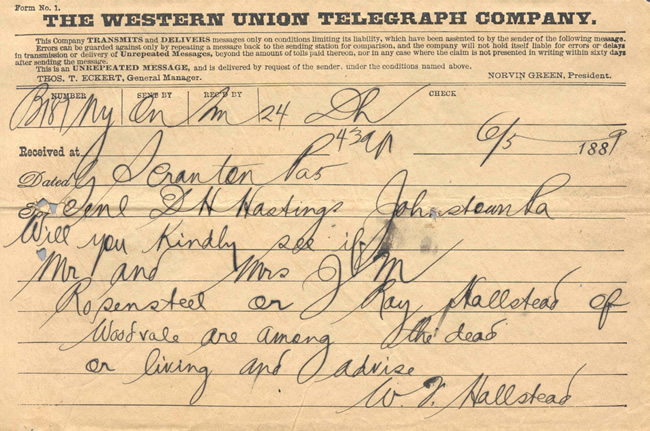 Form No. 1.
THE WESTERN UNION TELEGRAPH COMPANY.
This Company TRANSMITS and DELIVERS messages only on conditions limiting its liability, which have been assented to by the sender of the following message.
Errors can be guarded against only by repeating a message back to the sending station for comparison, and the company will not hold itself liable for errors or delays
in transmission or delivery of Unrepeated Messages, beyond the amount of tolls paid thereon, nor in any case where the claim is not presented in writing within sixty days
after sending the message.
This is an UNREPEATED MESSAGE, and is delivered by request of the sender, under the conditions named above.
THOS. T. ECKERT, General Manager. NORVIN GREEN, President.
NUMBER SENT BY REC'D BY CHECK
Ny On 24 Dh
Received at 6/5 1889
Dated Scranton Pa 5
To Genl D H Hastings Johnstown Pa
Will you kindly see if
Mr and Mrs J M
Rosensteel or Ray Hallstead of
Woodvale are among the dead
or living and advise
W. F. Hallstead